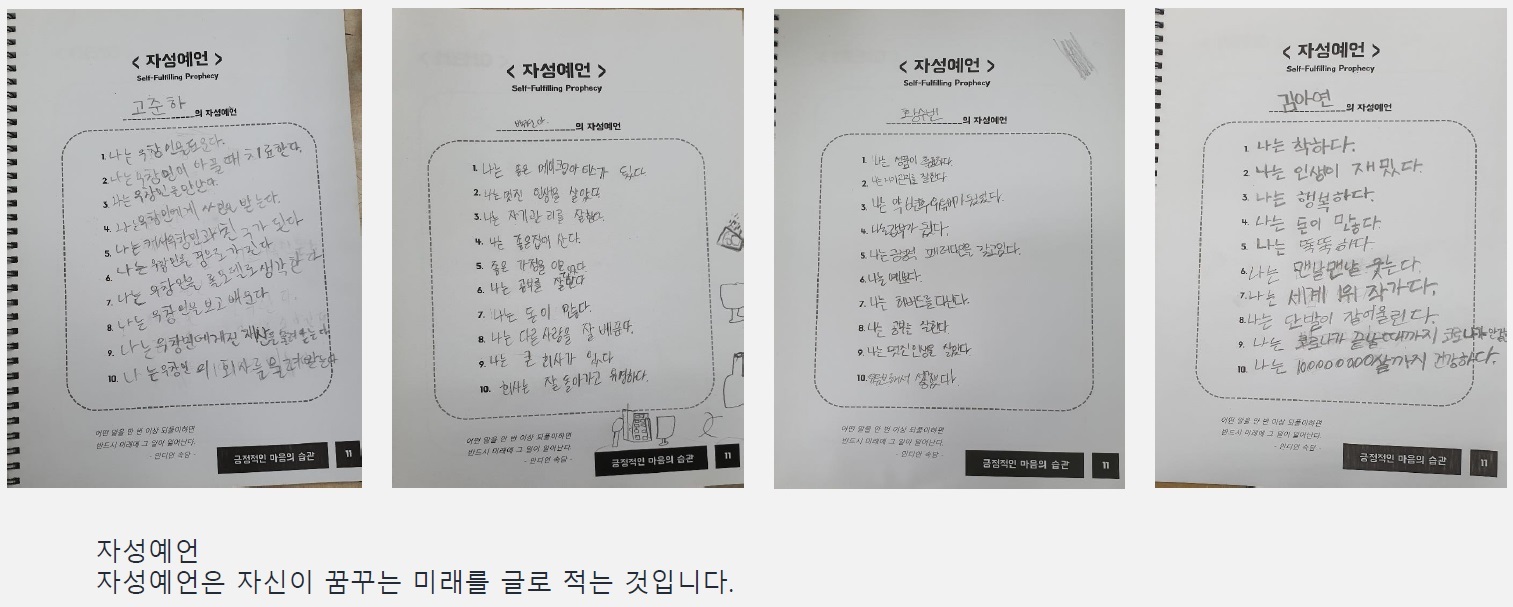 < 자성예언 >
Self-Fulfilling Prophecy
고준하의 자성예언
1. 나는 옥창인을 도운다.
2. 나는 옥창인이 아플 때 치료한다.
3. 나는 옥창인을 만난다.
4. 나는 옥창인에게 싸인을 받는다.
5. 나는 커서 옥창인과 친구가 된다
6. 나는 옥창인을 꿈으로 가진다
7. 나는 옥창인을 롤모델로 생각한다
8. 나는 옥창인을 보고 배운다
9. 나는 옥창인에게 재산을 물려받는다
10. 나는 옥창인의 회사를 물려받는다
어떤 말을 만 번 이상 되풀이하면
반드시 미래에 그 일이 일어난다.
- 인디언 속담 -
긍정적인 마음의 습관 11
< 자성예언 >
Self-Fulfilling Prophecy
의 자성예언
1. 나는 좋은 메이크업아티스가 됬다
2. 나는 멋진 인생을 살았다
3. 나는 자기관리를 잘한다.
4. 나는 좋은집에 산다.
5. 좋은 가정을 이루었다
6. 나는 공부를 잘한다
7. 나는 돈이 많다.
8. 나는 다른사람을 잘 배려한다.
9. 나는 큰 회사가 있다
10. 회사는 잘 돌아가고 유명하다.
어떤 말을 만 번 이상 되풀이하면
반드시 미래에 그 일이 일어난다.
- 인디언 속담 -
긍정적인 마음의 습관 11
< 자성예언 >
Self-Fulfilling Prophecy
의 자성예언
1. 나는 성품이 훌륭하다.
2. 나는 시간관리를 잘한다
3. 나는
4. 나는 갑부가 됬다.
5. 나는 긍정적 고정관념을 갖고있다.
6. 나는 예쁘다.
7. 나는 하버드를 다닌다.
8. 나는 공부를 잘한다.
9. 나는 멋진 인생을 살았다
10. 성공했다!
어떤 말을 만 번 이상 되풀이하면
반드시 미래에 그 일이 일어난다.
- 인디언 속담 -
긍정적인 마음의 습관 11
< 자성예언 >
Self-Fulfilling Prophecy
김아연의 자성예언
1. 나는 착하다.
2. 나는 인생이 재밌다.
3. 나는 행복하다.
4. 나는 돈이 많다.
5. 나는 똑똑하다.
6. 나는 맨날맨날 웃는다.
7. 나는 세계 1위 작가다.
8. 나는 단발이 잘어울린다.
9. 나는 코로나가 끝날때까지 코로나가 안걸
10. 나는 1000000000살까지 건강하다.
어떤 말을 만 번 이상 되풀이하면
반드시 미래에 그 일이 일어난다.
- 인디언 속담 -
긍정적인 마음의 습관 11
자성예언
자성예언은 자신이 꿈꾸는 미래를 글로 적는 것입니다.